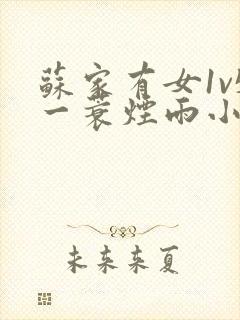 蘇家有女1v
一蓑煙雨小
未来来夏